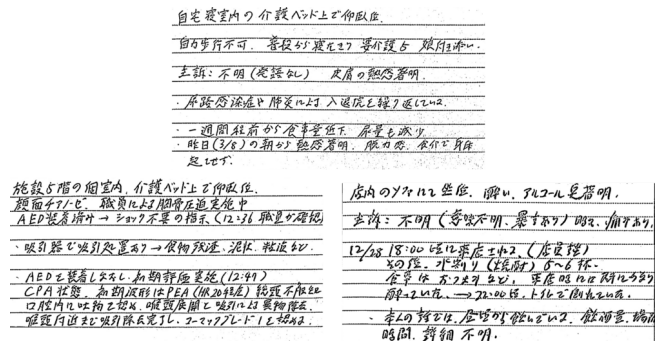 自宅寝室内の介護ベッド上で仰臥位.
自力歩行不可. 普段から寝たきり 要介護5 娘付き添い.
主訴:不明(発語なし) 皮膚の熱感著明.
・尿路感染症や肺炎により入退院を繰り返している.
・一週間程前から食事量低下. 尿量も減少
・昨日(3/8)の朝から熱感著明. 脱力感.
足せず.
施設5階の個室内. 介護ベッド上で仰臥位.
顔面チアノーゼ. 職員による胸骨圧迫実施中
AED装着済み→ショック不要の指示(12:36 職員が確認)
・吸引器で吸引処置あり→食物残渣、泥状、粘液など.
・AEDを装着しなおし、初期評価実施(12:47)
CPA状態. 初期波形はPEA(HR20程度)総頸不触知
口腔内に吐物を認め、喉頭展開と吸引にて異物除去.
喉頭付近まで吸引除去完了し、コーマックグレード1を認める.
店内のソファにて坐位. 酩酊. アルコール臭著明.
主訴:不明(意味不明、暴言あり)時々、痛があり.
12/28 18:00頃に来店された.(店員談)
その後、水割り(焼酎)5〜6杯.
食事はおつまみなど、来店時には既に
酔っていた. →22:00頃. トイレで倒れていた.
・本人の話では、昼間から飲んでいる. 飲酒量、場所
時間、詳細不明.